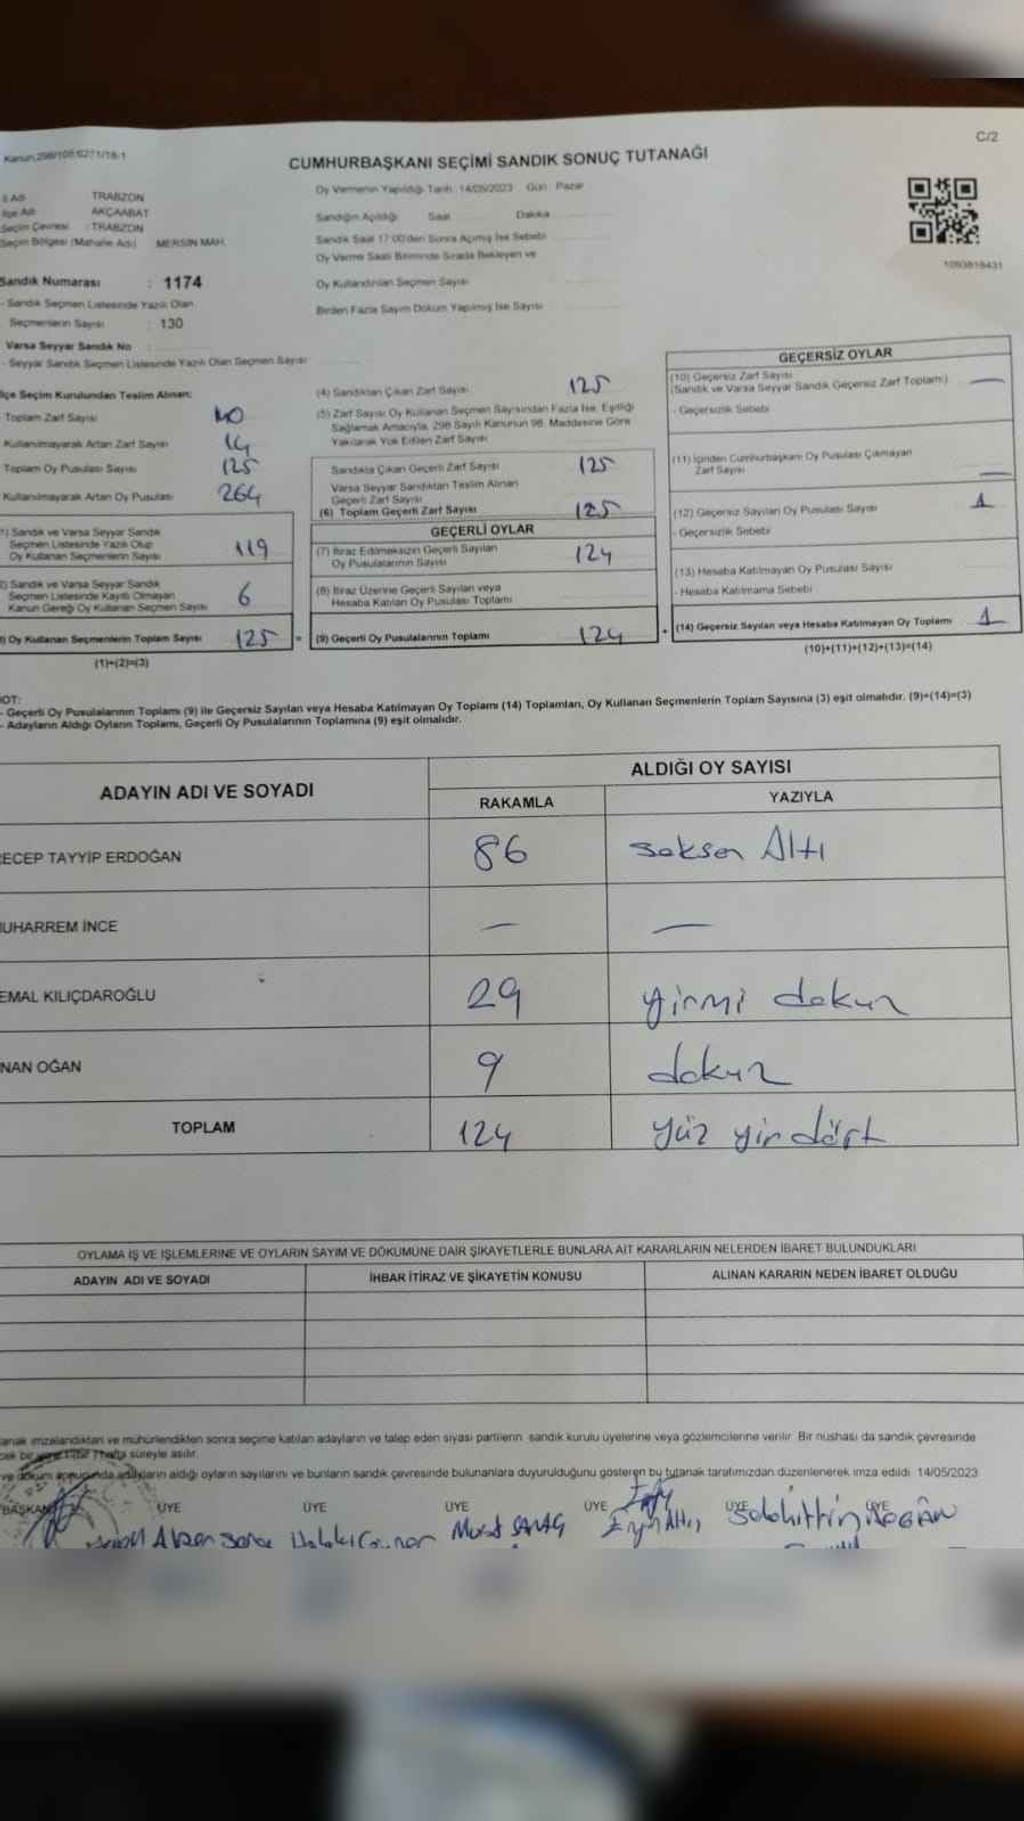 C/2
CUMHURBAŞKANI SEÇİMİ SANDIK SONUÇ TUTANAĞI
TRABZON
AKÇAABAT
Seçim Çevresi : TRABZON
Seçim Bölgesi (Mahalle Adı) MERSİN MAH.
Oy Vermenin Yapıldığı Tarih: 14/05/2023 Gün: Pazar
Sandığın Açıldığı Saat Dakika
Sandık Saat 17:00'den Sonra Açılmış İse Sebebi
Oy Verme Saati Bitiminde Sırada Bekleyen ve
Oy Kullandırılan Seçmen Sayısı
Birden Fazla Sayım Döküm Yapılmış İse Sayısı
1093818431
Sandık Numarası : 1174
- Sandık Seçmen Listesinde Yazılı Olan
Seçmenlerin Sayısı : 130
Varsa Seyyar Sandık No
- Seyyar Sandık Seçmen Listesinde Yazılı Olan Seçmen Sayısı
lçe Seçim Kurulundan Teslim Alınan:
Toplam Zarf Sayısı
Kullanılmayarak Artan Zarf Sayısı 14
Toplam Oy Pusulası Sayısı 125
Kullanılmayarak Artan Oy Pusulası 264
) Sandık ve Varsa Seyyar Sandık
Seçmen Listesinde Yazılı Olup
Oy Kullanan Seçmenlerin Sayısı 119
) Sandık ve Varsa Seyyar Sandık
Seçmen Listesinde Kayıtlı Olmayan
Kanun Gereği Oy Kullanan Seçmen Sayısı 6
) Oy Kullanan Seçmenlerin Toplam Sayısı 125
(1)+(2)=(3)
(4) Sandıktan Çıkan Zarf Sayısı 125
(5) Zarf Sayısı Oy Kullanan Seçmen Sayısından Fazla İse, Eşitliği
Sağlamak Amacıyla, 298 Sayılı Kanunun 98. Maddesine Göre
Yakılarak Yok Edilen Zarf Sayısı
Sandıkta Çıkan Geçerli Zarf Sayısı 125
Varsa Seyyar Sandıktan Teslim Alınan
Geçerli Zarf Sayısı
(6) Toplam Geçerli Zarf Sayısı 125
GEÇERLİ OYLAR
(7) İtiraz Edilmeksizin Geçerli Sayılan
Oy Pusulalarının Sayısı 124
(8) İtiraz Üzerine Geçerli Sayılan veya
Hesaba Katılan Oy Pusulası Toplamı
= (9) Geçerli Oy Pusulalarının Toplamı 124
GEÇERSİZ OYLAR
(10) Geçersiz Zarf Sayısı
(Sandık ve Varsa Seyyar Sandık Geçersiz Zarf Toplamı) —
- Geçersizlik Sebebi
(11) İçinden Cumhurbaşkanı Oy Pusulası Çıkmayan
Zarf Sayısı —
(12) Geçersiz Sayılan Oy Pusulası Sayısı 1
- Geçersizlik Sebebi
(13) Hesaba Katılmayan Oy Pusulası Sayısı
- Hesaba Katılmama Sebebi
+ (14) Geçersiz Sayılan veya Hesaba Katılmayan Oy Toplamı 1
(10)+(11)+(12)+(13)=(14)
OT:
- Geçerli Oy Pusulalarının Toplamı (9) ile Geçersiz Sayılan veya Hesaba Katılmayan Oy Toplamı (14) Toplamları, Oy Kullanan Seçmenlerin Toplam Sayısına (3) eşit olmalıdır. (9)+(14)=(3)
- Adayların Aldığı Oyların Toplamı, Geçerli Oy Pusulalarının Toplamına (9) eşit olmalıdır.
ADAYIN ADI VE SOYADI ALDIĞI OY SAYISI
RAKAMLA YAZIYLA
ECEP TAYYİP ERDOĞAN 86 seksen Altı
UHARREM İNCE — —
EMAL KILIÇDAROĞLU 29 yirmi dokuz
NAN OĞAN 9 dokuz
TOPLAM 124 yüz yir dört
OYLAMA İŞ VE İŞLEMLERİNE VE OYLARIN SAYIM VE DÖKÜMÜNE DAİR ŞİKAYETLERLE BUNLARA AİT KARARLARIN NELERDEN İBARET BULUNDUKLARI
ADAYIN ADI VE SOYADI İHBAR İTİRAZ VE ŞİKAYETİN KONUSU ALINAN KARARIN NEDEN İBARET OLDUĞU
anak imzalandıktan ve mühürlendikten sonra seçime katılan adayların ve talep eden siyasi partilerin sandık kurulu üyelerine veya gözlemcilerine verilir. Bir nüshası da sandık çevresinde
hafta süreyle asılır.
adayların aldığı oyların sayılarını ve bunların sandık çevresinde bulunanlara duyurulduğunu gösteren bu tutanak tarafımızdan düzenlenerek imza edildi. 14/05/2023
BAŞKAN ÜYE ÜYE ÜYE ÜYE ÜYE ÜYE
Murat